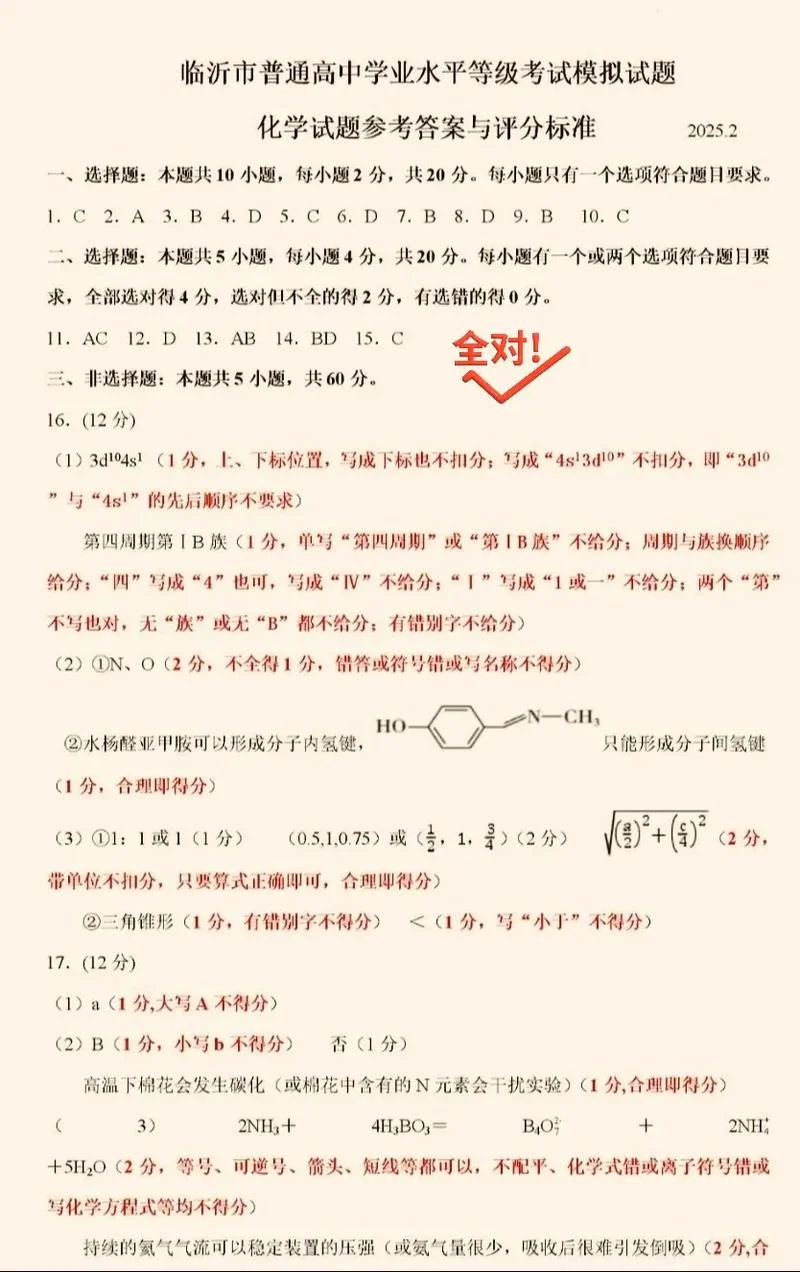 临沂市普通高中学业水平等级考试模拟试题
化学试题参考答案与评分标准 2025.2
一、选择题：本题共 10 小题，每小题 2 分，共 20 分。每小题只有一个选项符合题目要求。
1．C 2．A 3．B 4．D 5．C 6．D 7．B 8．D 9．B 10．C
二、选择题：本题共 5 小题，每小题 4 分，共 20 分。每小题有一个或两个选项符合题目要
求，全部选对得 4 分，选对但不全的得 2 分，有选错的得 0 分。
11．AC 12．D 13．AB 14．BD 15．C
全对！
三、非选择题：本题共 5 小题，共 60 分。
16．(12 分)
（1）3d¹⁰4s¹（1 分，上、下标位置，写成下标也不扣分；写成“4s¹3d¹⁰”不扣分，即“3d¹⁰
”与“4s¹”的先后顺序不要求）
第四周期第ⅠB 族（1 分，单写“第四周期”或“第ⅠB 族”不给分；周期与族换顺序
给分；“四”写成“4”也可，写成“Ⅳ”不给分；“Ⅰ”写成“1 或一”不给分；两个“第”
不写也对，无“族”或无“B”都不给分；有错别字不给分）
（2）①N、O（2 分，不全得 1 分，错答或符号错或写名称不得分）
②水杨醛亚甲胺可以形成分子内氢键，HO N—CH₃ 只能形成分子间氢键
（1 分，合理即得分）
（3）①1：1 或 1（1 分） （0.5,1,0.75）或（1/2，1，3/4）（2 分） √((a/2)²+(c/4)²)（2 分，
带单位不扣分，只要算式正确即可，合理即得分）
②三角锥形（1 分，有错别字不得分） ＜（1 分，写“小于”不得分）
17．(12 分)
（1）a（1 分,大写 A 不得分）
（2）B（1 分，小写 b 不得分） 否（1 分）
高温下棉花会发生碳化（或棉花中含有的 N 元素会干扰实验）（1 分,合理即得分）
（ 3） 2NH₃＋ 4H₃BO₃＝ B₄O₇²⁻ ＋ 2NH₄⁺
＋5H₂O（2 分，等号、可逆号、箭头、短线等都可以，不配平、化学式错或离子符号错或
写化学方程式等均不得分）
持续的氦气气流可以稳定装置的压强（或氨气量很少，吸收后很难引发倒吸）（2 分,合